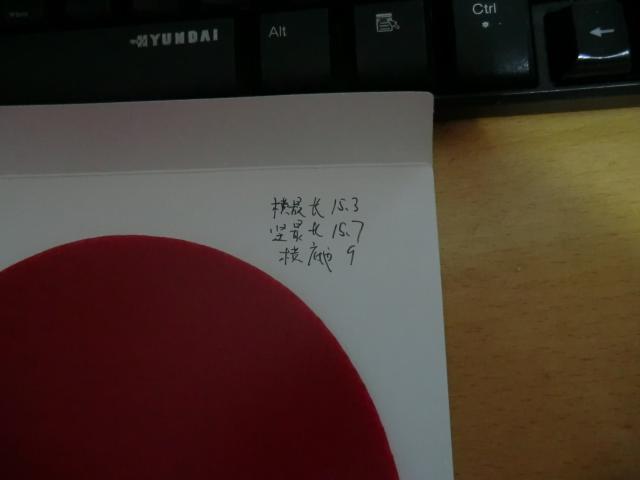 HYUNDAI
Alt
Ctrl
横最长 15.3
竖最长 15.7
横底边 9